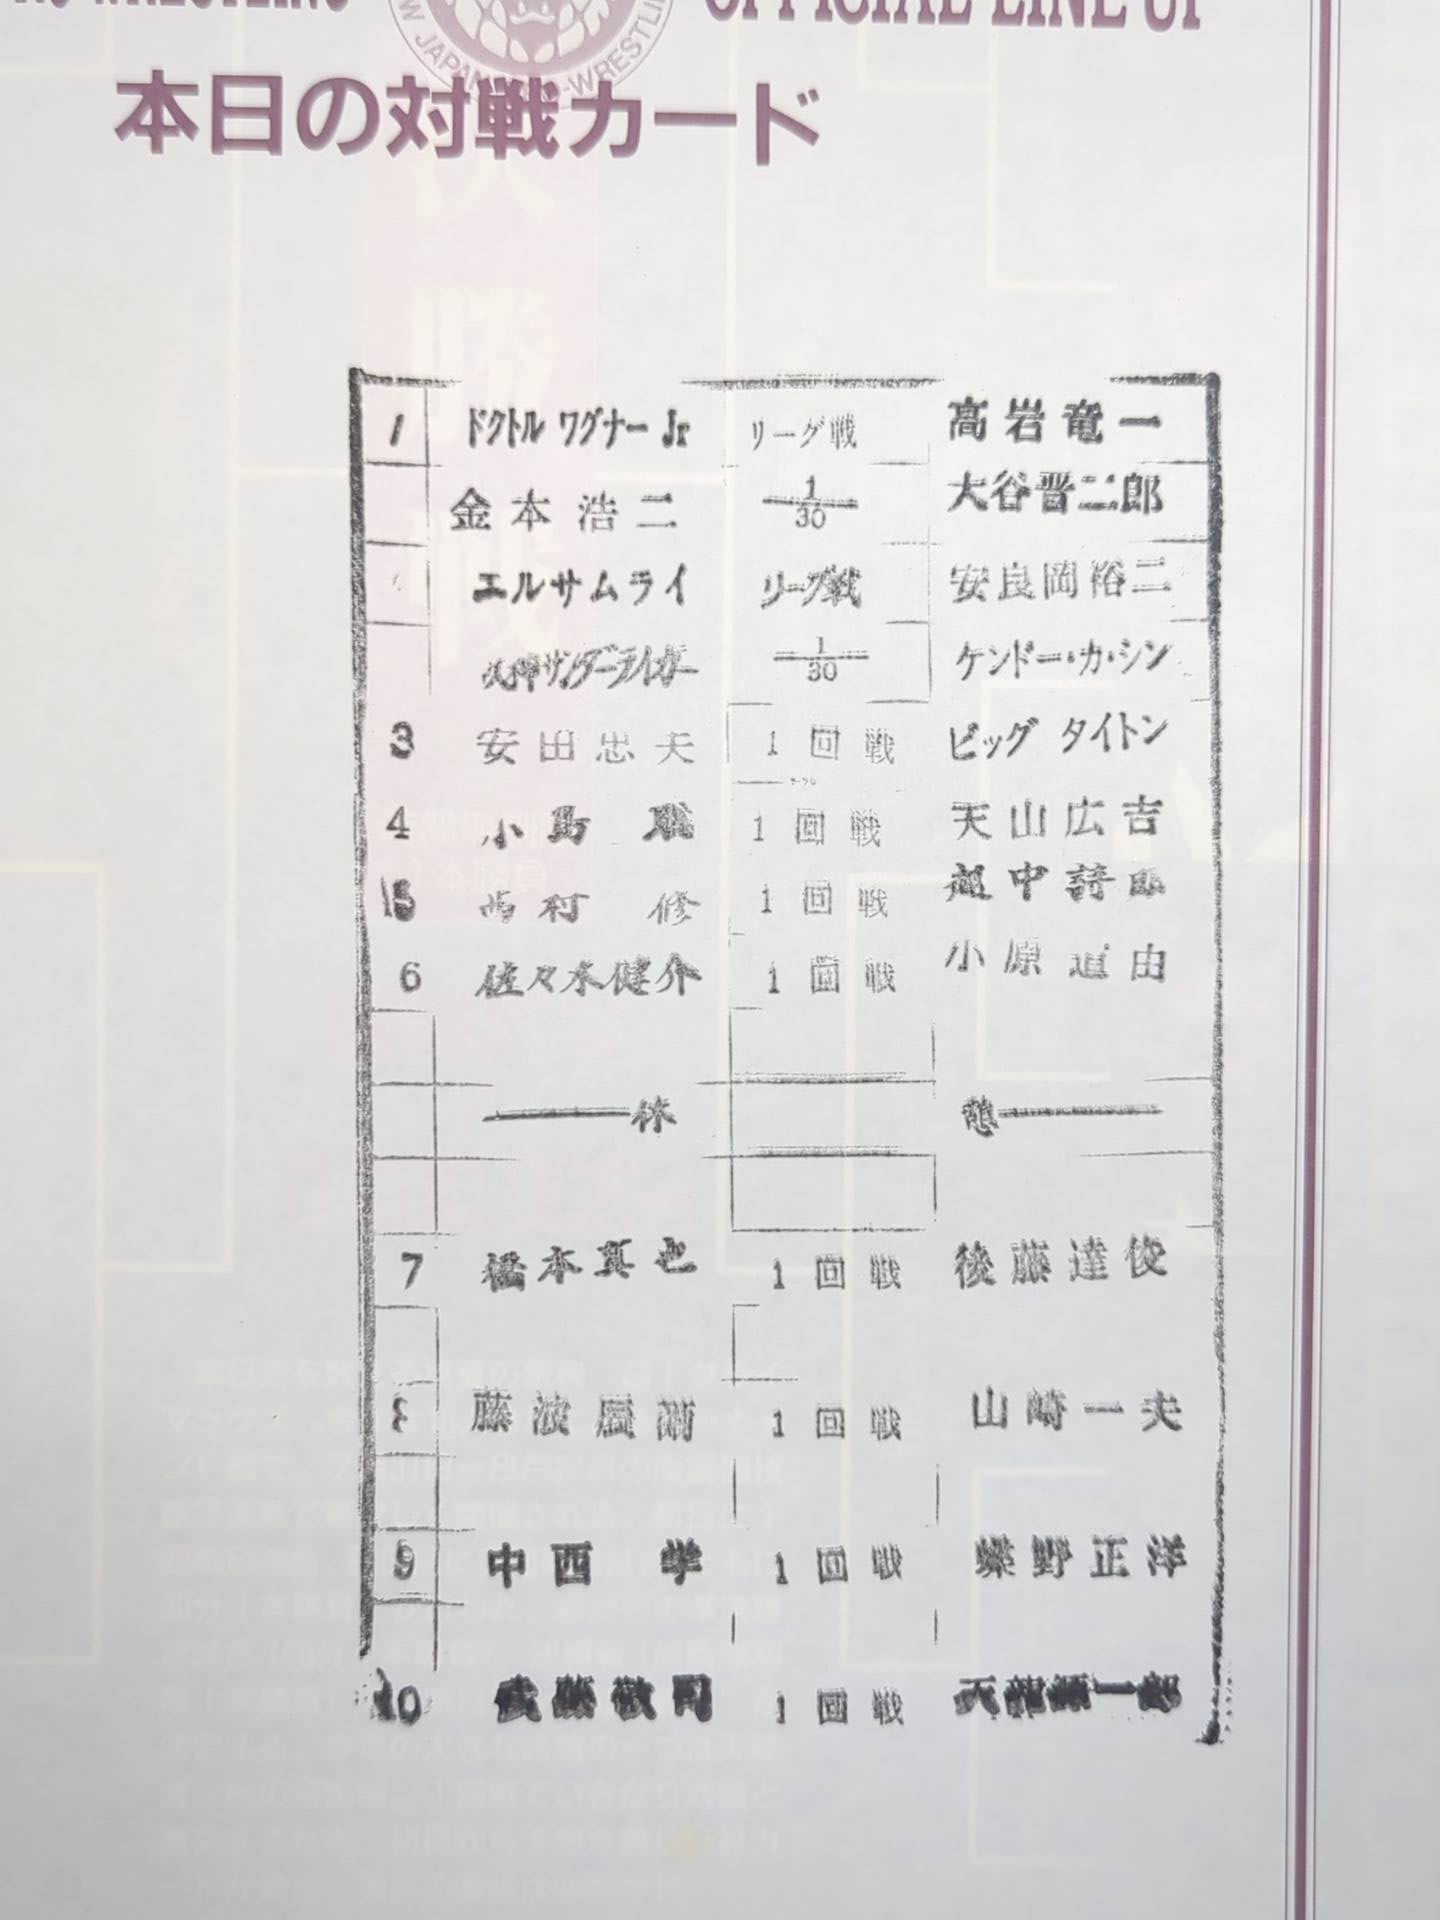 WRESTLING
OFFICIAL LINE UP
W JAPAN PRO-WRESTLIN
本日の対戦カード
1 ドクトル ワグナー Jr リーグ戦 高岩竜一
金本浩二 1/30 大谷晋二郎
エルサムライ リーグ戦 安良岡裕二
獣神サンダーライガー 1/30 ケンドー・カ・シン
3 安田忠夫 1回戦 ビッグ タイトン
4 小島 聡 1回戦 天山広吉
5 西村 修 1回戦 越中詩郎
6 佐々木健介 1回戦 小原道由
休 憩
7 橋本真也 1回戦 後藤達俊
8 藤波辰爾 1回戦 山崎一夫
9 中西 学 1回戦 蝶野正洋
10 武藤敬司 1回戦 天龍源一郎